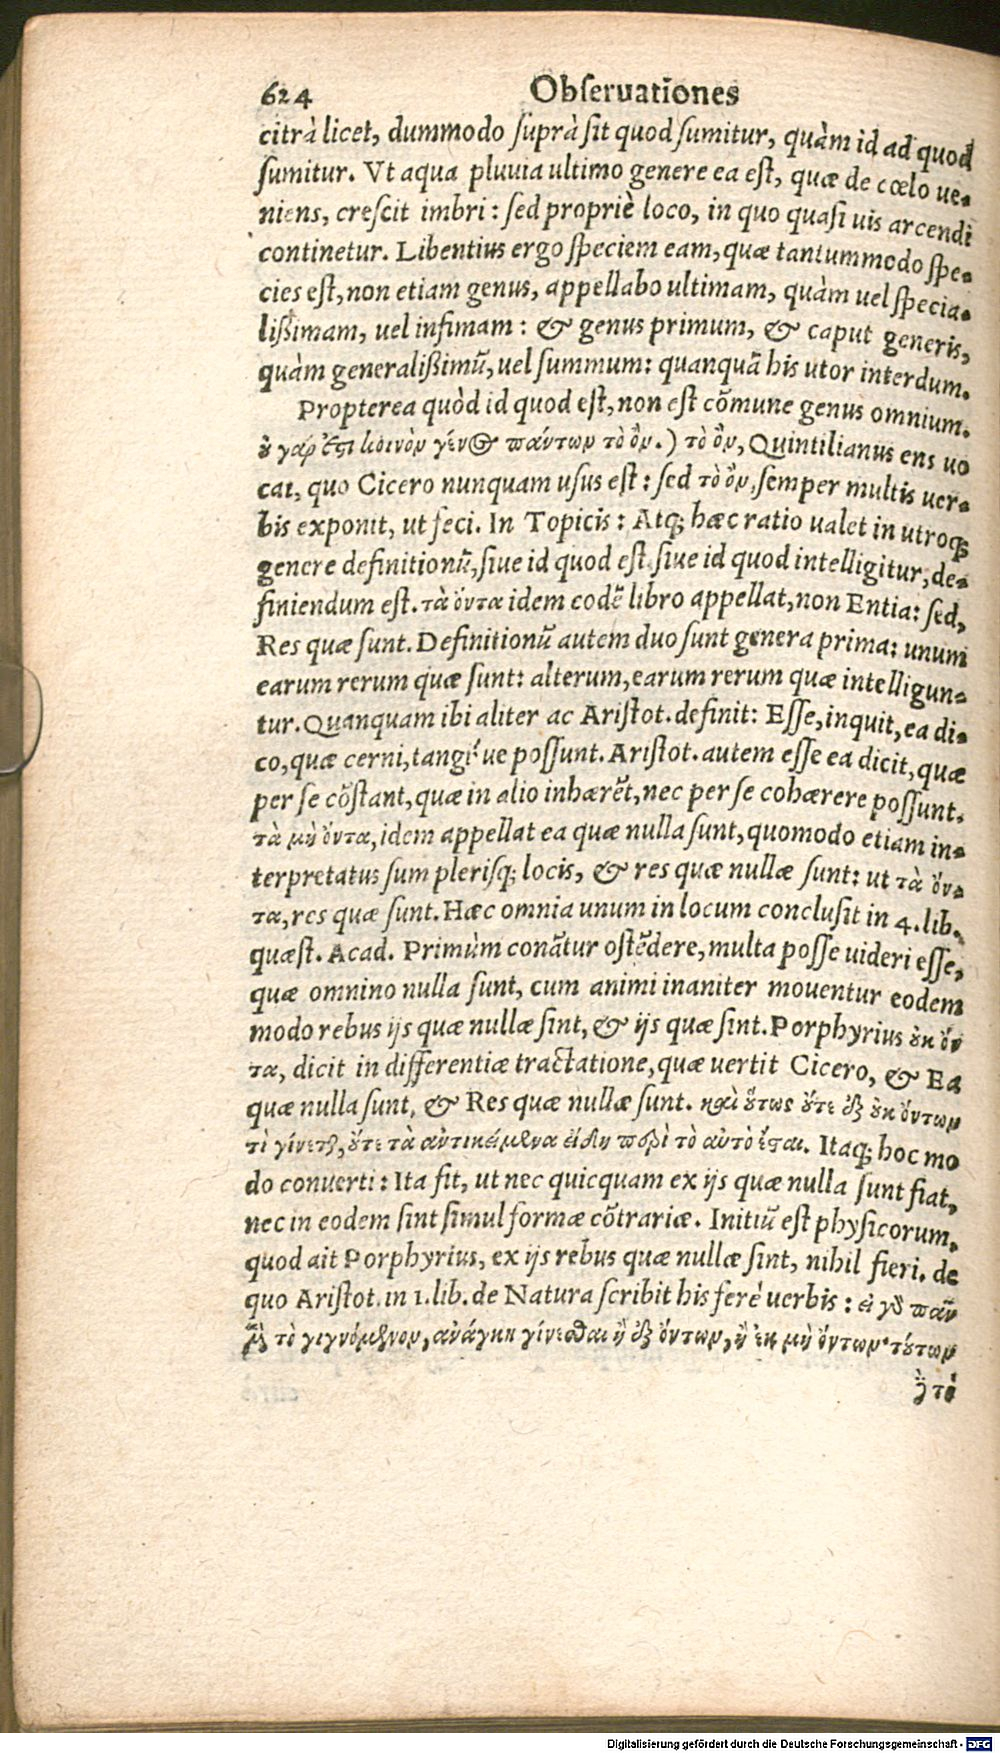 624 Obſeruationes
citrà licet, dummodo ſuprà ſit quod ſumitur, quàm id ad quod
ſumitur. Vt aqua pluuia ultimo genere ea eſt, quæ de cœlo ue-
niens, creſcit imbri: ſed propriè loco, in quo quaſi uis arcendi
continetur. Libentius ergo ſpeciem eam, quæ tantummodo ſpe-
cies eſt, non etiam genus, appellabo ultimam, quàm uel ſpecia-
lißimam, uel infimam: & genus primum, & caput generis,
quàm generalißimũ, uel ſummum: quanquã his utor interdum.
Propterea quòd id quod eſt, non eſt cõmune genus omnium.
ȣ γάρ ἐςι κοινὸν γένος πάντων τὸ ὄν.) τὸ ὄν, Quintilianus ens uo
cat, quo Cicero nunquam uſus eſt: ſed τὸ ὄν, ſemper multis uer-
bis exponit, ut feci. In Topicis: Atq; hæc ratio ualet in utroq;
genere definitionũ, ſiue id quod eſt, ſiue id quod intelligitur, de-
finiendum eſt. τὰ ὄντα idem eodẽ libro appellat, non Entia: ſed,
Res quæ ſunt. Definitionũ autem duo ſunt genera prima: unum
earum rerum quæ ſunt: alterum, earum rerum quæ intelligun-
tur. Quanquam ibi aliter ac Ariſtot. definit: Eſſe, inquit, ea di-
co, quæ cerni, tangíue poſſunt. Ariſtot. autem eſſe ea dicit, quæ
per ſe cõſtant, quæ in alio inhærẽt, nec per ſe cohærere poſſunt.
τὰ μὴ ὄντα, idem appellat ea quæ nulla ſunt, quomodo etiam in-
terpretatus ſum pleriſq; locis, & res quæ nullæ ſunt: ut τὰ ὄν-
τα, res quæ ſunt. Hæc omnia unum in locum concluſit in 4. lib.
quæſt. Acad. Primùm conãtur oſtẽdere, multa poſſe uideri eſſe,
quæ omnino nulla ſunt, cum animi inaniter moueantur eodem
modo rebus ijs quæ nullæ ſint, & ijs quæ ſint. Porphyrius ȣκ ὄν
τα, dicit in differentiæ tractatione, quæ uertit Cicero, & Ea
quæ nulla ſunt, & Res quæ nullæ ſunt. καὶ ȣ̋τως ȣ̋τε ἐξ ȣκ ὄντων
τὶ γίνεται, ȣ̋τε τὰ αὐτικείμενα εἴδη περὶ τὸ αὐτὸ ἔςαι. Itaq; hoc mo
do conuerti: Ita fit, ut nec quicquam ex ijs quæ nulla ſunt fiat,
nec in eodem ſint ſimul formæ cõtrariæ. Initiũ eſt phyſicorum,
quod ait Porphyrius, ex ijs rebus quæ nullæ ſint, nihil fieri. de
quo Ariſtot. in 1. lib. de Natura ſcribit his ferè uerbis: εἰ γὸ παν̃
μὲν τὸ γιγνόμενον, ανάγκη γίνεσθαι ἢ ἐξ ὄντων, ἢ ἐκ μὴ ὄντων· τȣ́των
ὃ τὸ